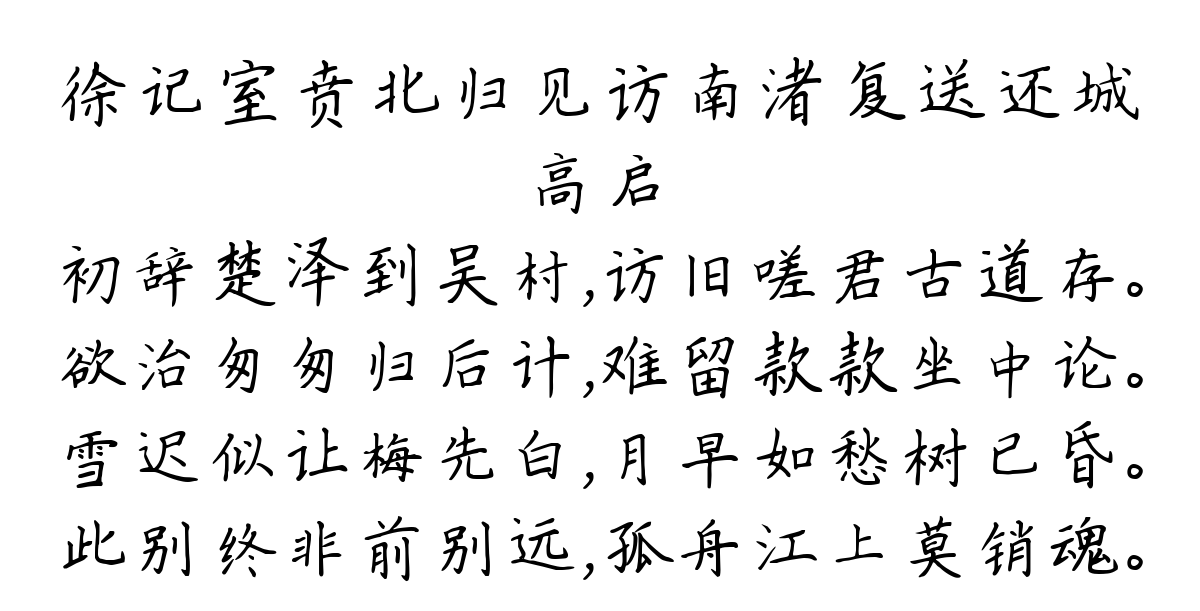 徐记室贲北归见访南渚复送还城
高启
初辞楚泽到吴村,访旧嗟君古道存。
欲治匆匆归后计,难留款款坐中论。
雪迟似让梅先白,月早如愁树已昏。
此别终非前别远,孤舟江上莫销魂。